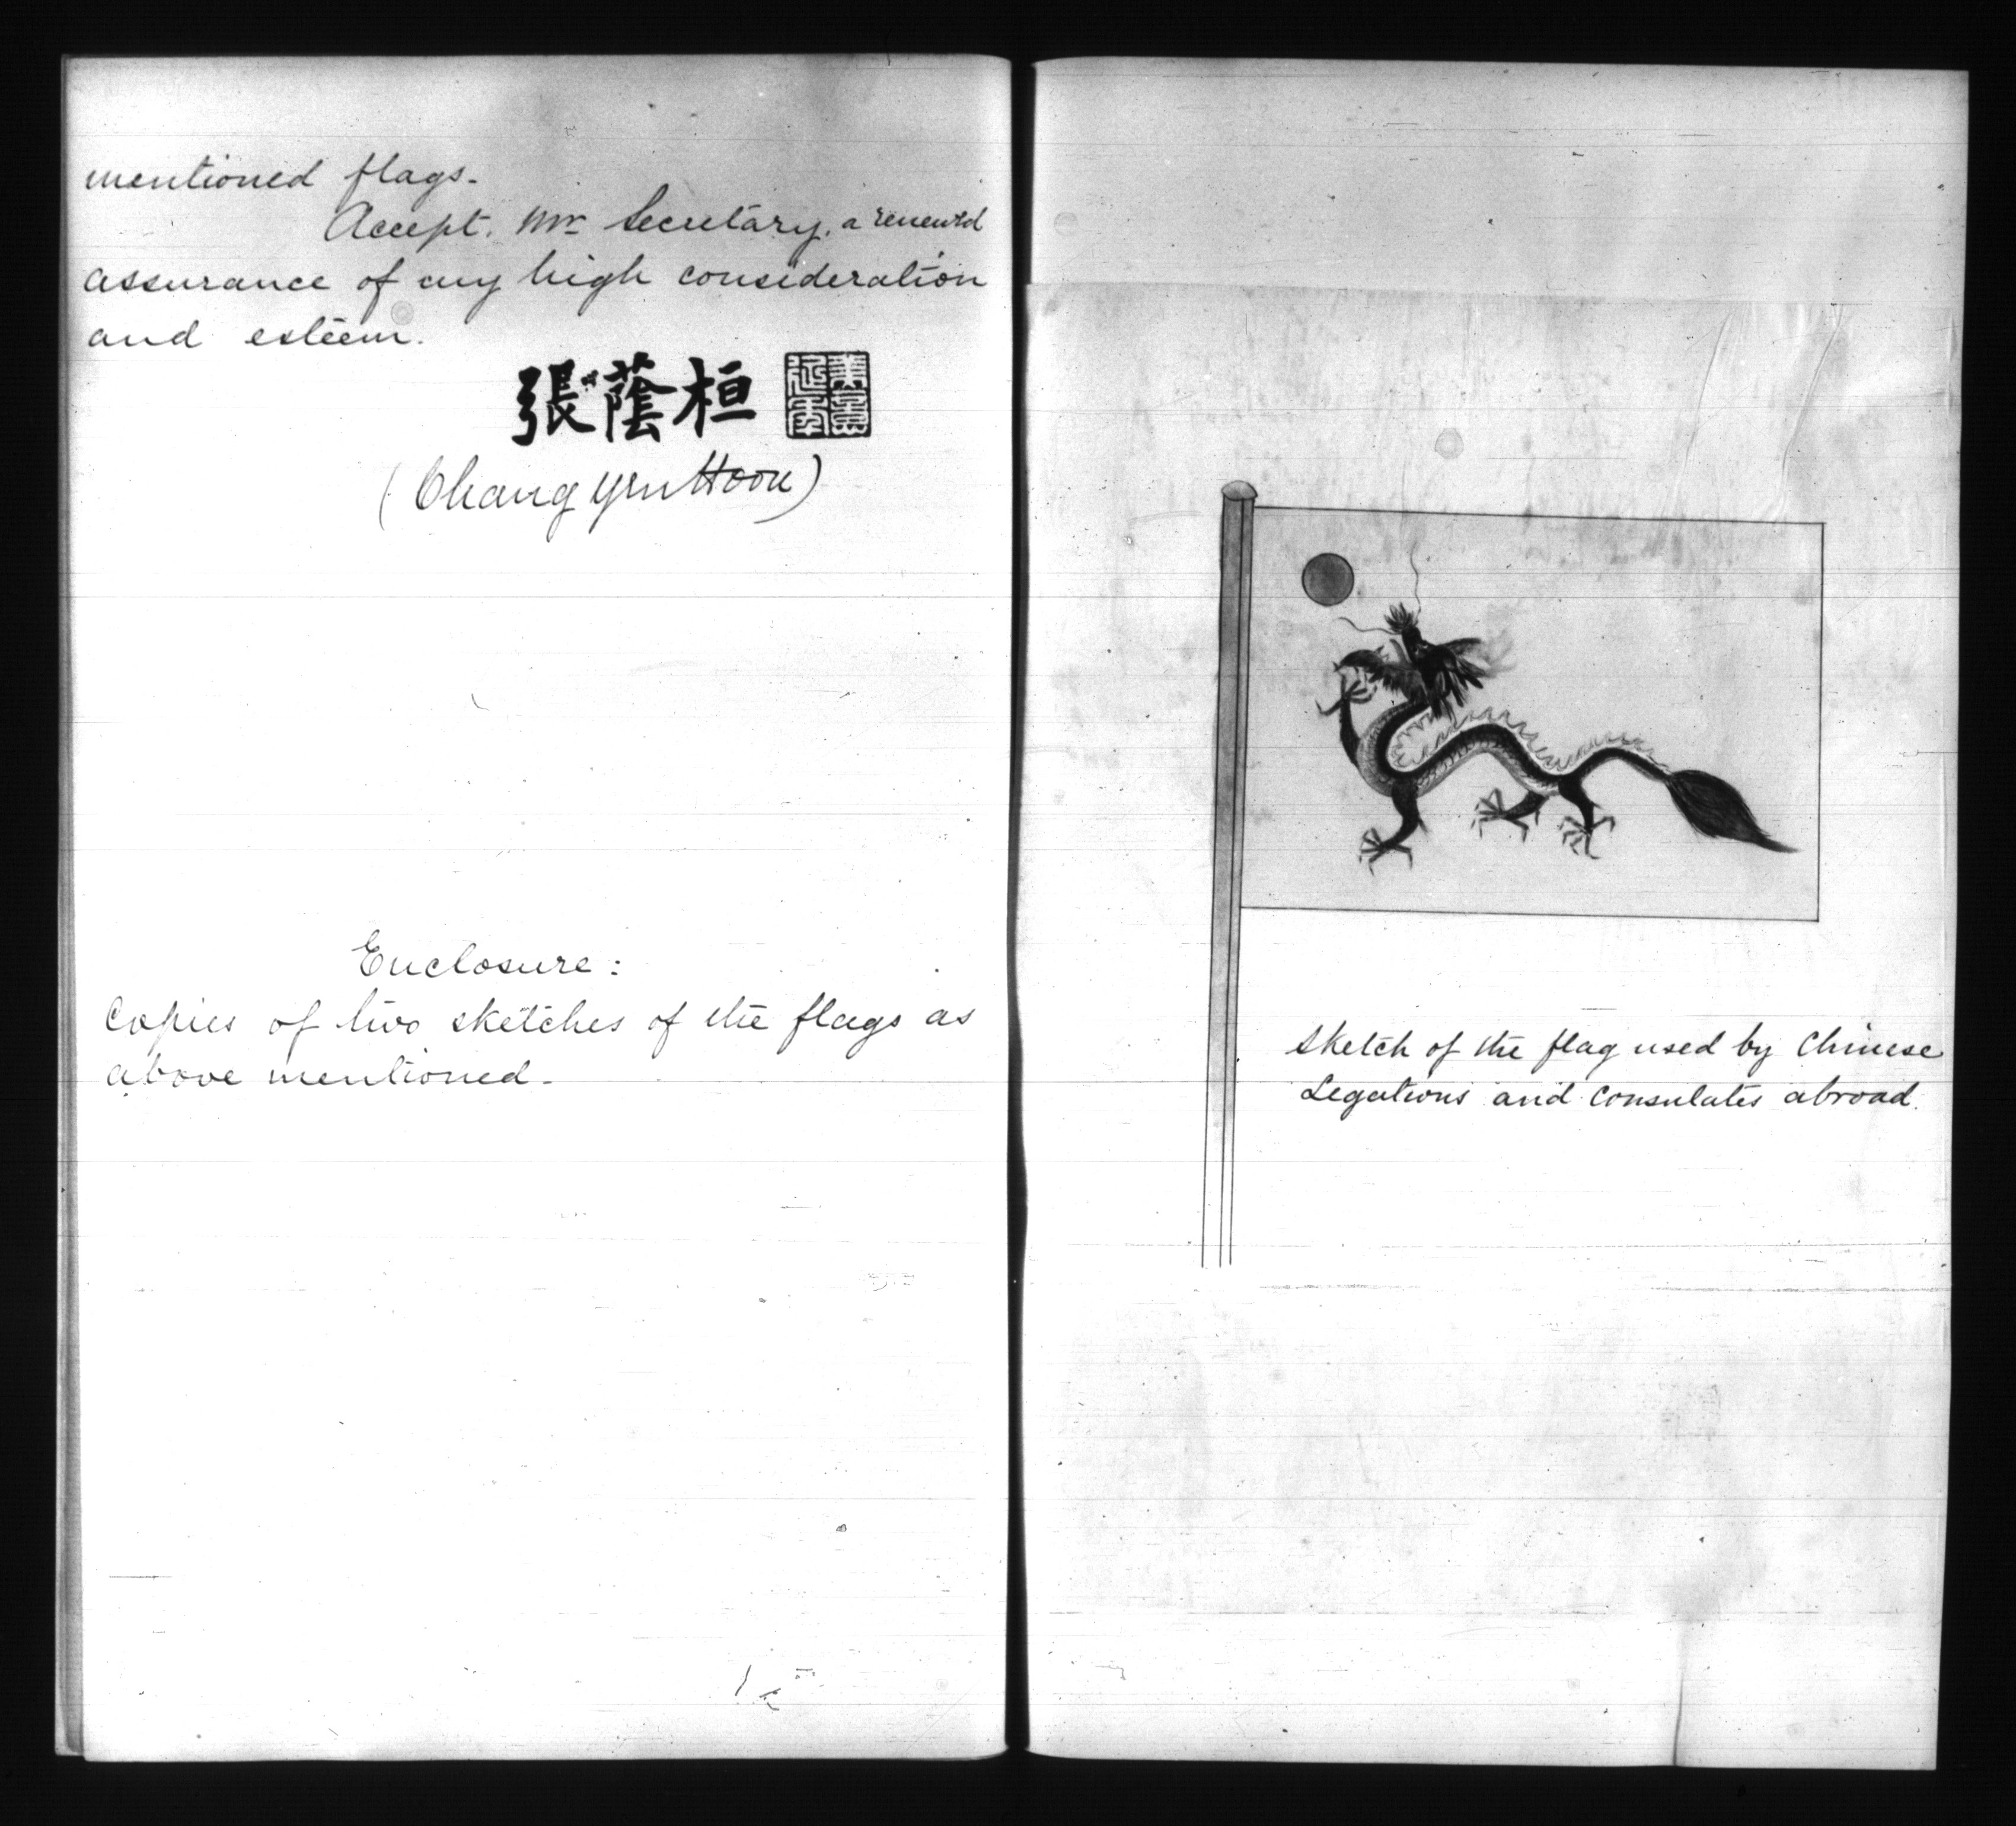 mentioned flags.
Accept, Mr Secretary, a renewed
assurance of my high consideration
and esteem.
張蔭桓
(Chang Yen Hoon)
Enclosure:
Copies of two sketches of the flags as
above mentioned.
Sketch of the flag used by Chinese
Legations and Consulates abroad.